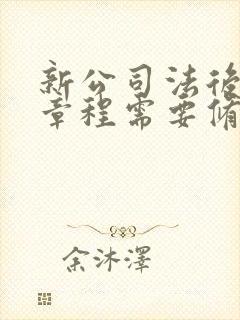 新公司法後
章程需要脩
余沐澤